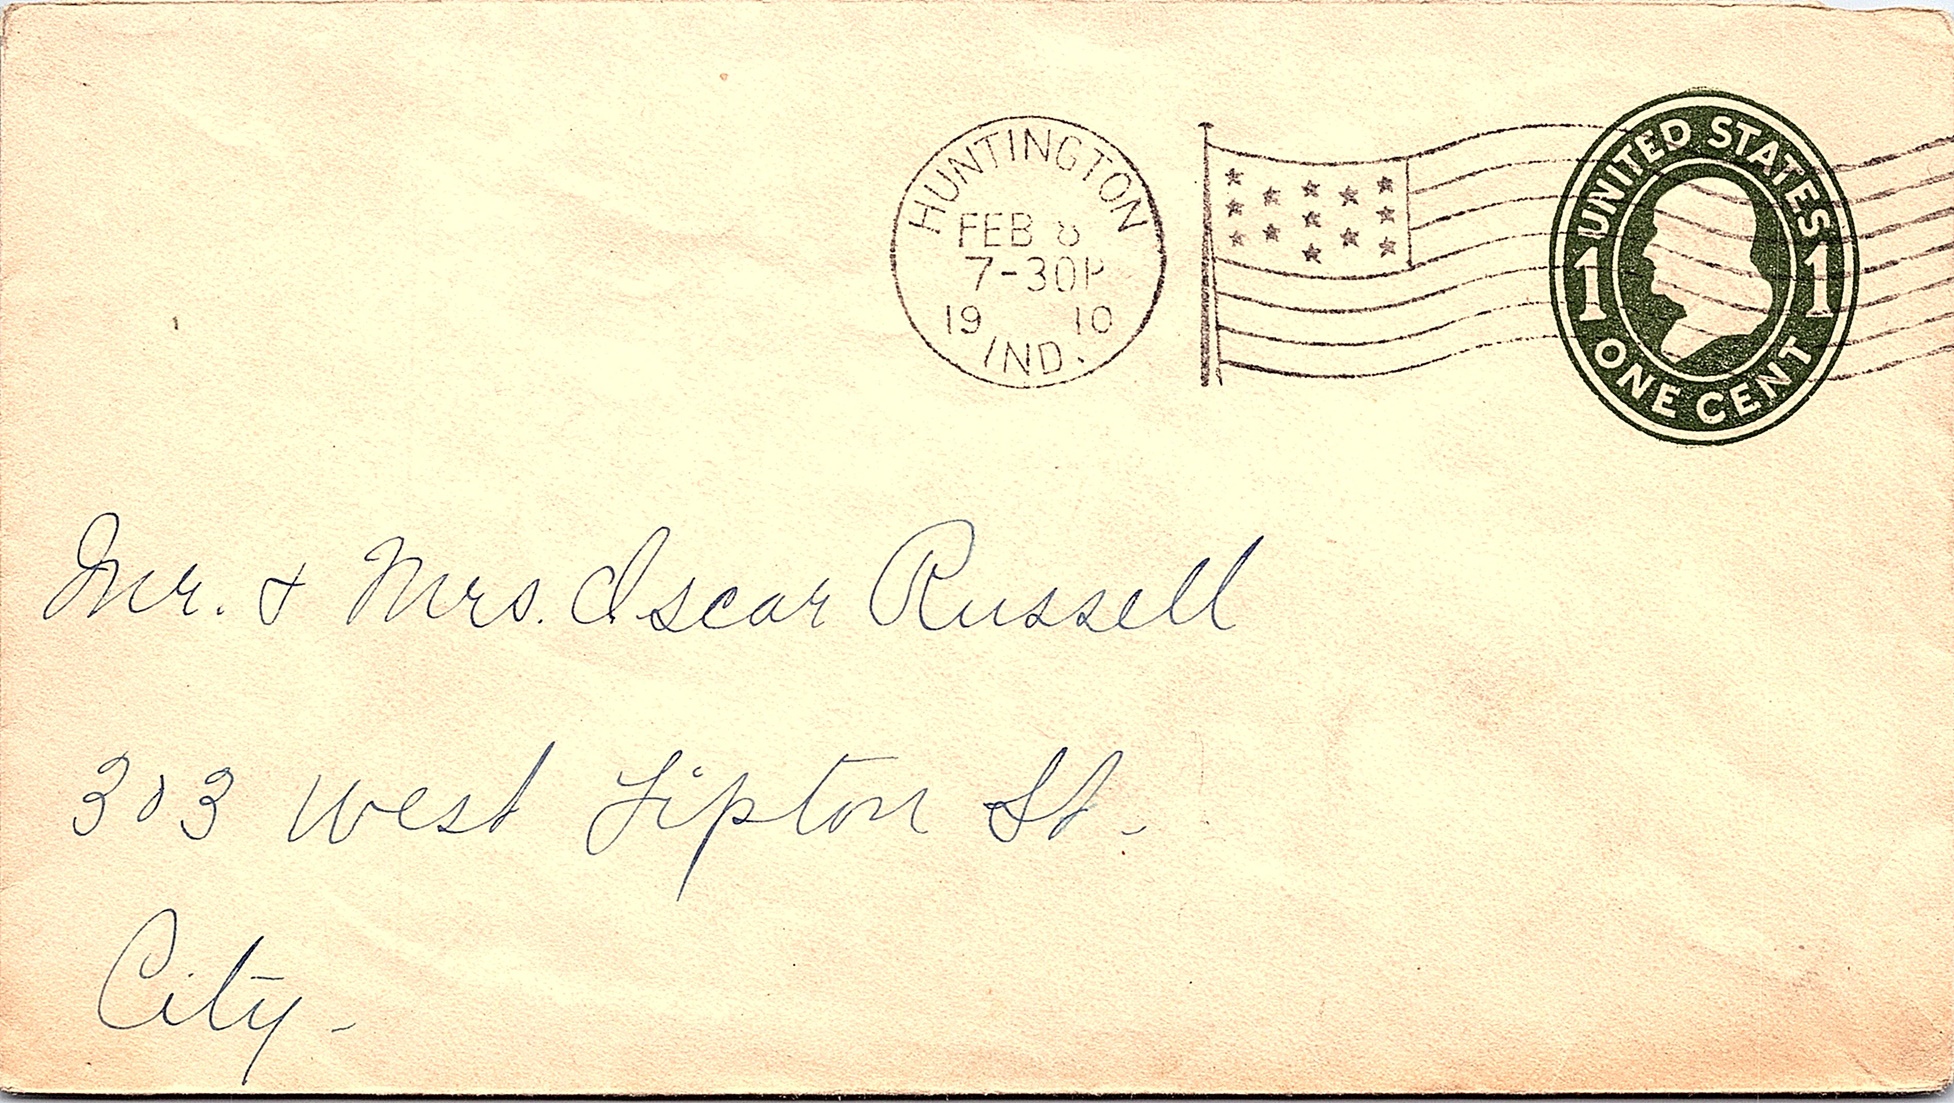 HUNTINGTON
FEB 8
7-30P
19 10
IND.
UNITED STATES
1 1
ONE CENT
Mr. & Mrs. Oscar Russell
303 West Tipton St.
City-